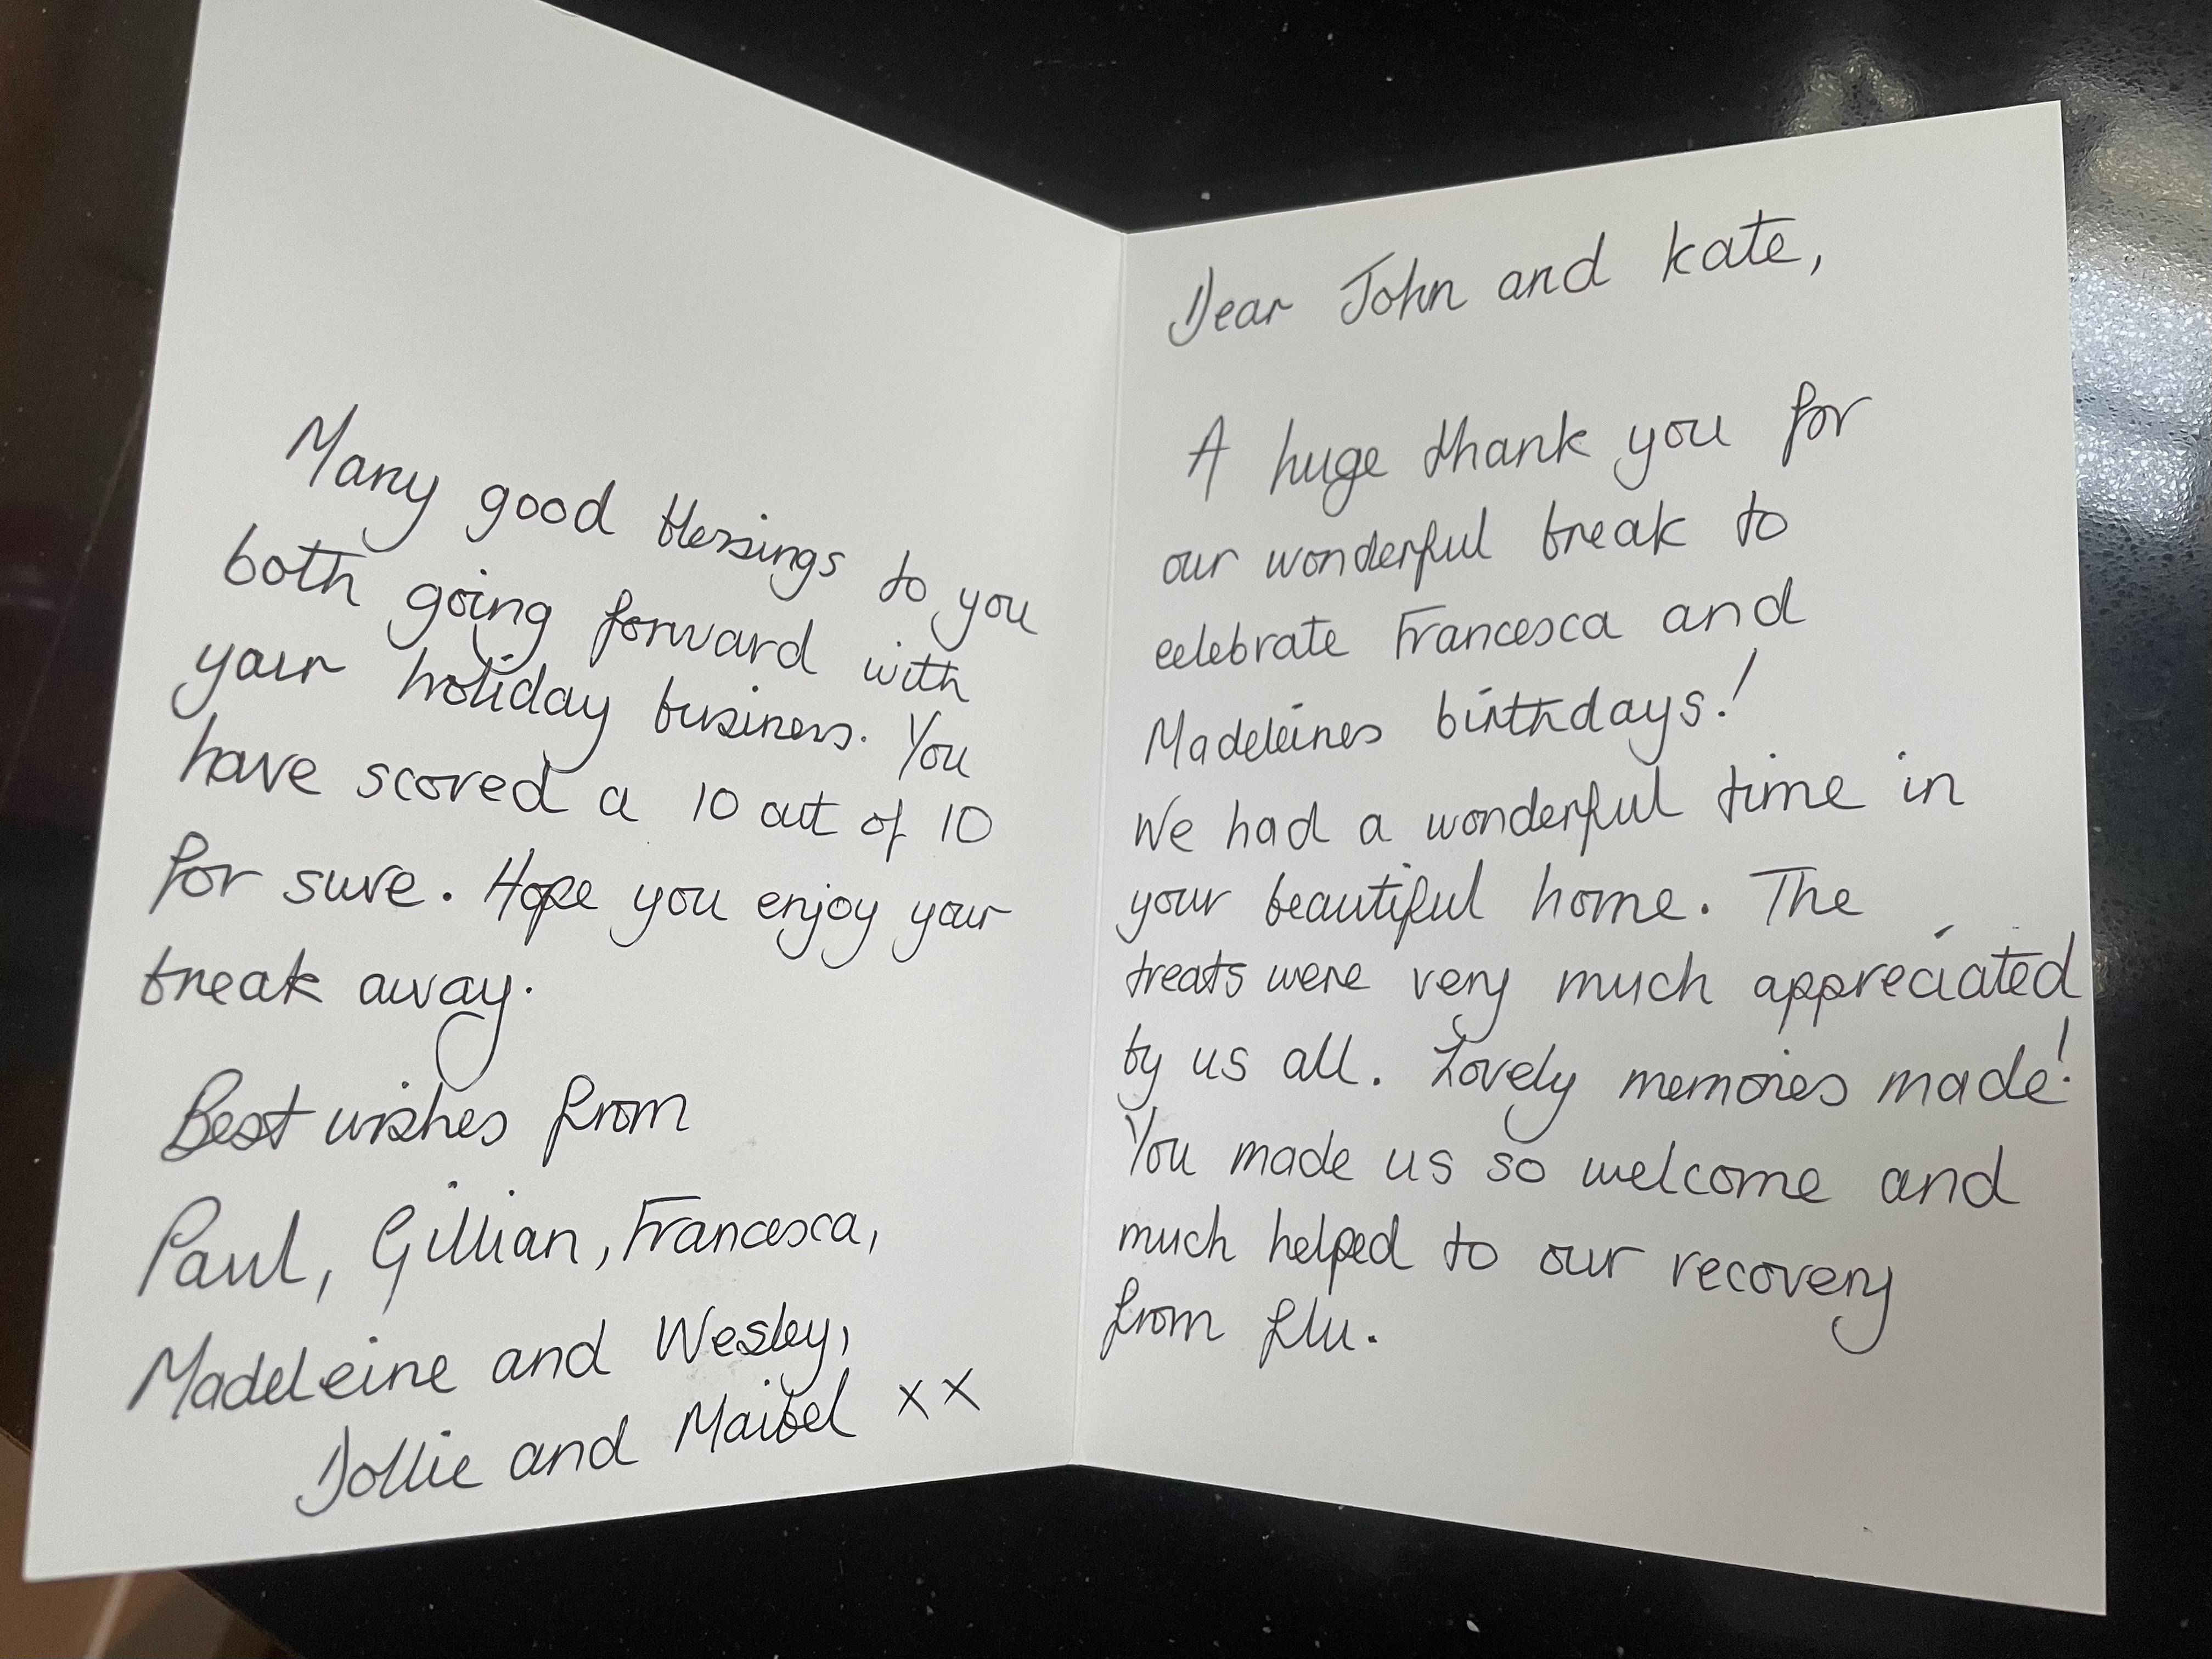 Many good blessings to you
both going forward with
your holiday business. You
have scored a 10 out of 10
for sure. Hope you enjoy your
break away.
Best wishes from
Paul, Gillian, Francesca,
Madeleine and Wesley,
Dollie and Maibel xx
Dear John and Kate,
A huge thank you for
our wonderful break to
celebrate Francesca and
Madeleines birthdays!
We had a wonderful time in
your beautiful home. The
treats were very much appreciated
by us all. Lovely memories made!
You made us so welcome and
much helped to our recovery
from flu.